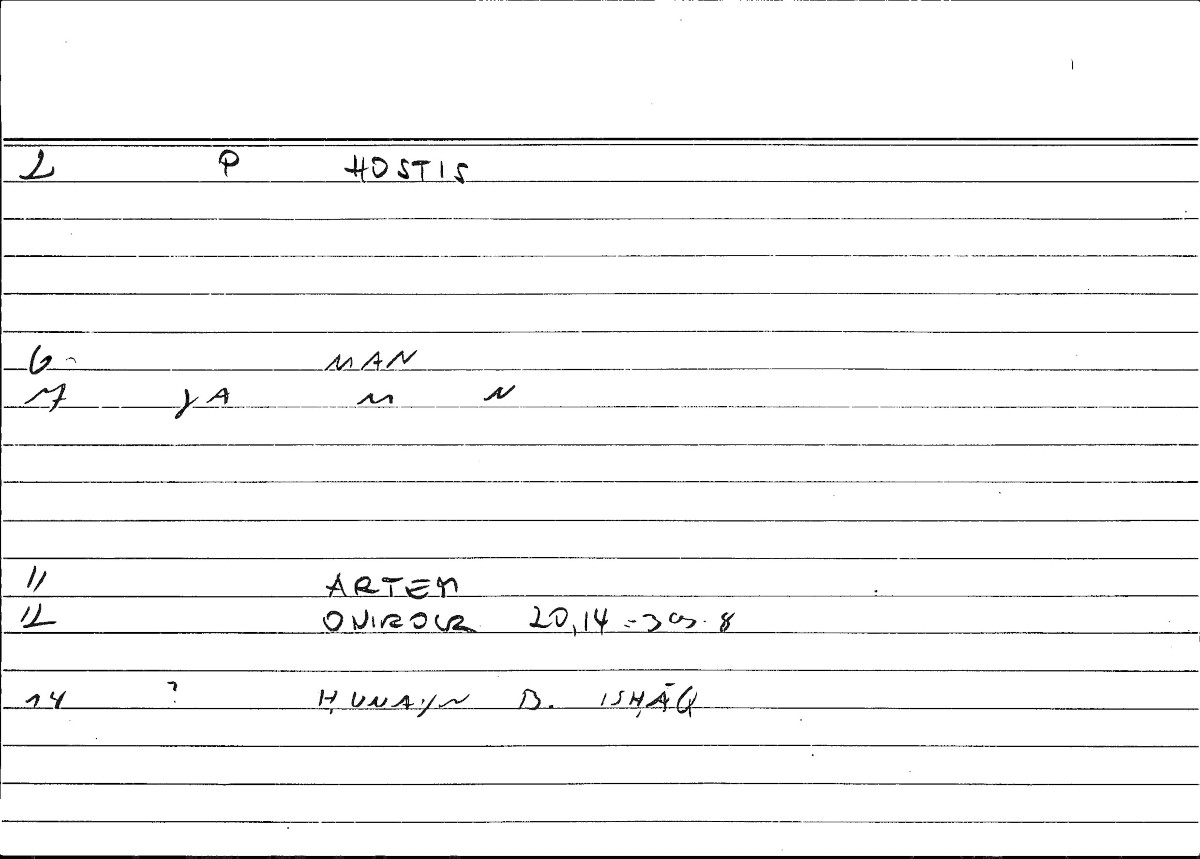 2 P HOSTIS
6 MAN
7 YA M N
11 ARTEM
12 ONIROCR 20,14 = 303.8
14 ? ḤUNAYN B. ISḤĀQ